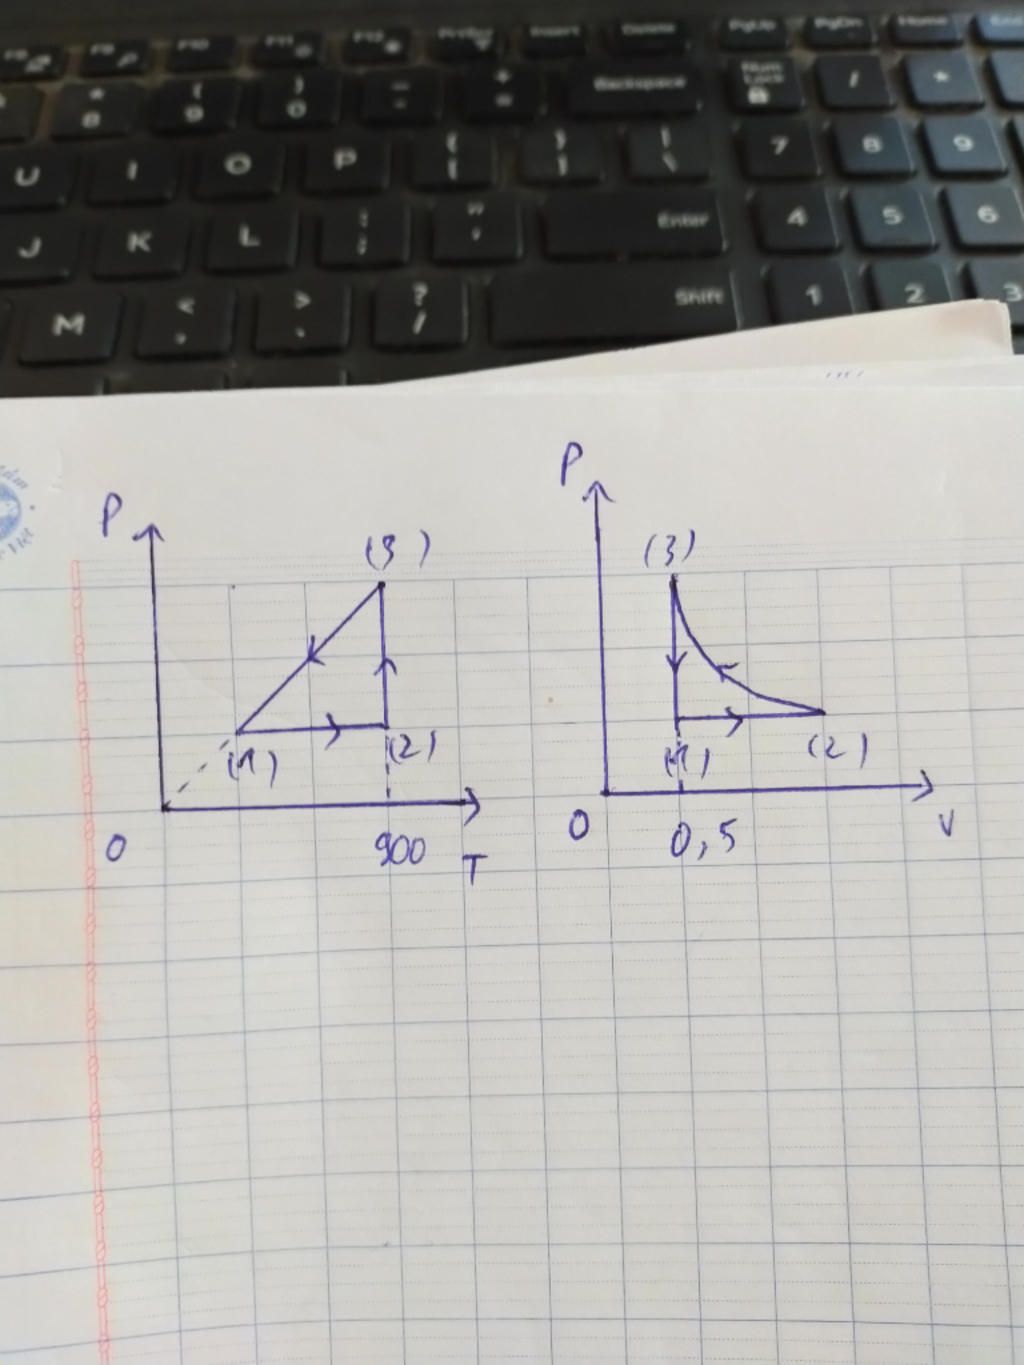 F10 F11 F12 PrtScr Insert Delete PgUp PgDn Home End
* 8 ( 9 ) 0 _ - + = Backspace Num Lock / *
U I O P { [ } ] | \ 7 8 9
J K L : ; " ' Enter 4 5 6
M < , > . ? / Shift 1 2 3
P
(3)
(1)
(2)
O
900
T
P
(3)
(1)
(2)
O
0,5
V